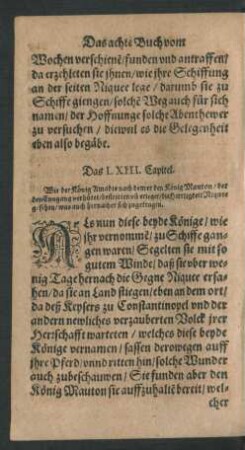 Das achte Buch vom
Wochen verschienē/ funden vnd antraffen/
da erzehleten sie jhnen/ wie jhre Schiffung
an der seiten Niquee lege/ darumb sie zu
Schiffe giengen/ solchē Weg auch für sich
namen/ der Hoffnunge solche Abenthewer
zu versuchen/ diewil es die Gelegenheit
eben also begäbe.
Das LXIII. Capitel.
Wie der König Amadis nach dem er den König Mauton/ der
den Eingang verhütet/ bestritten
gesehen/ was auch hernacher sich zugetragen.
ALs nun diese beyde Könige/ wie
jhr vernommē/ zu Schiffe gan-
gen waren/ Segelten sie mit so
gutem Winde/ daß sie vber we-
nig Tage hernach die Gegne Niquee ersa-
hen/ da sie an Land stiegen/ eben an dem ort/
da deß Keysers zu Constantinopel vnd der
andern newliches verzauberten Volck jrer
Herrschafft warteten/ welches diese beyde
Könige vernamen/ sassen derowegen auff
jhre Pferd/ vnnd ritten hin/ solche Wunder
auch zubeschauwen/ Sie funden aber den
König Mauton sie auffzuhaltē bereit/ wel-
cher